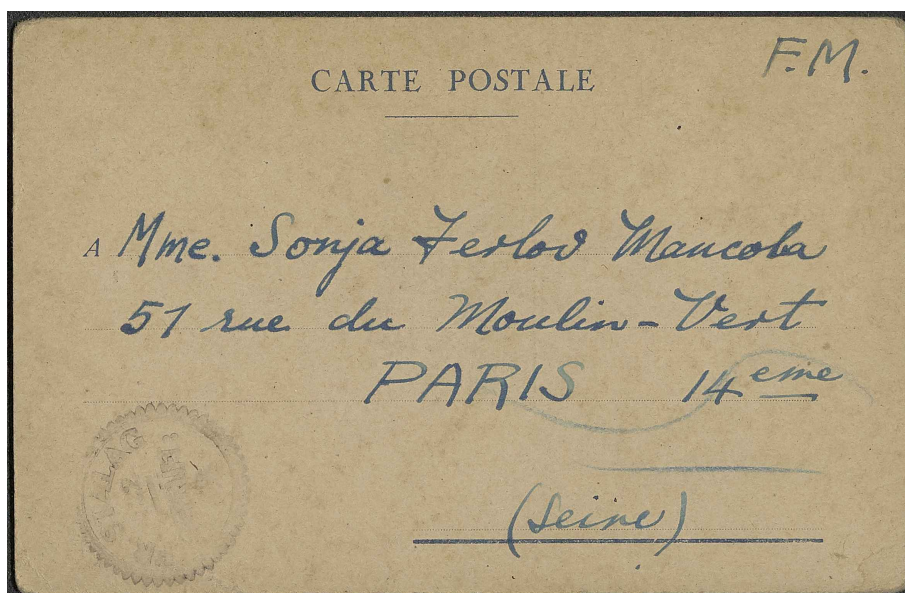 F.M.
CARTE POSTALE
A Mme. Sonja Ferlov Mancoba
51 rue du Moulin-Vert
PARIS 14eme
(Seine)
STALAG